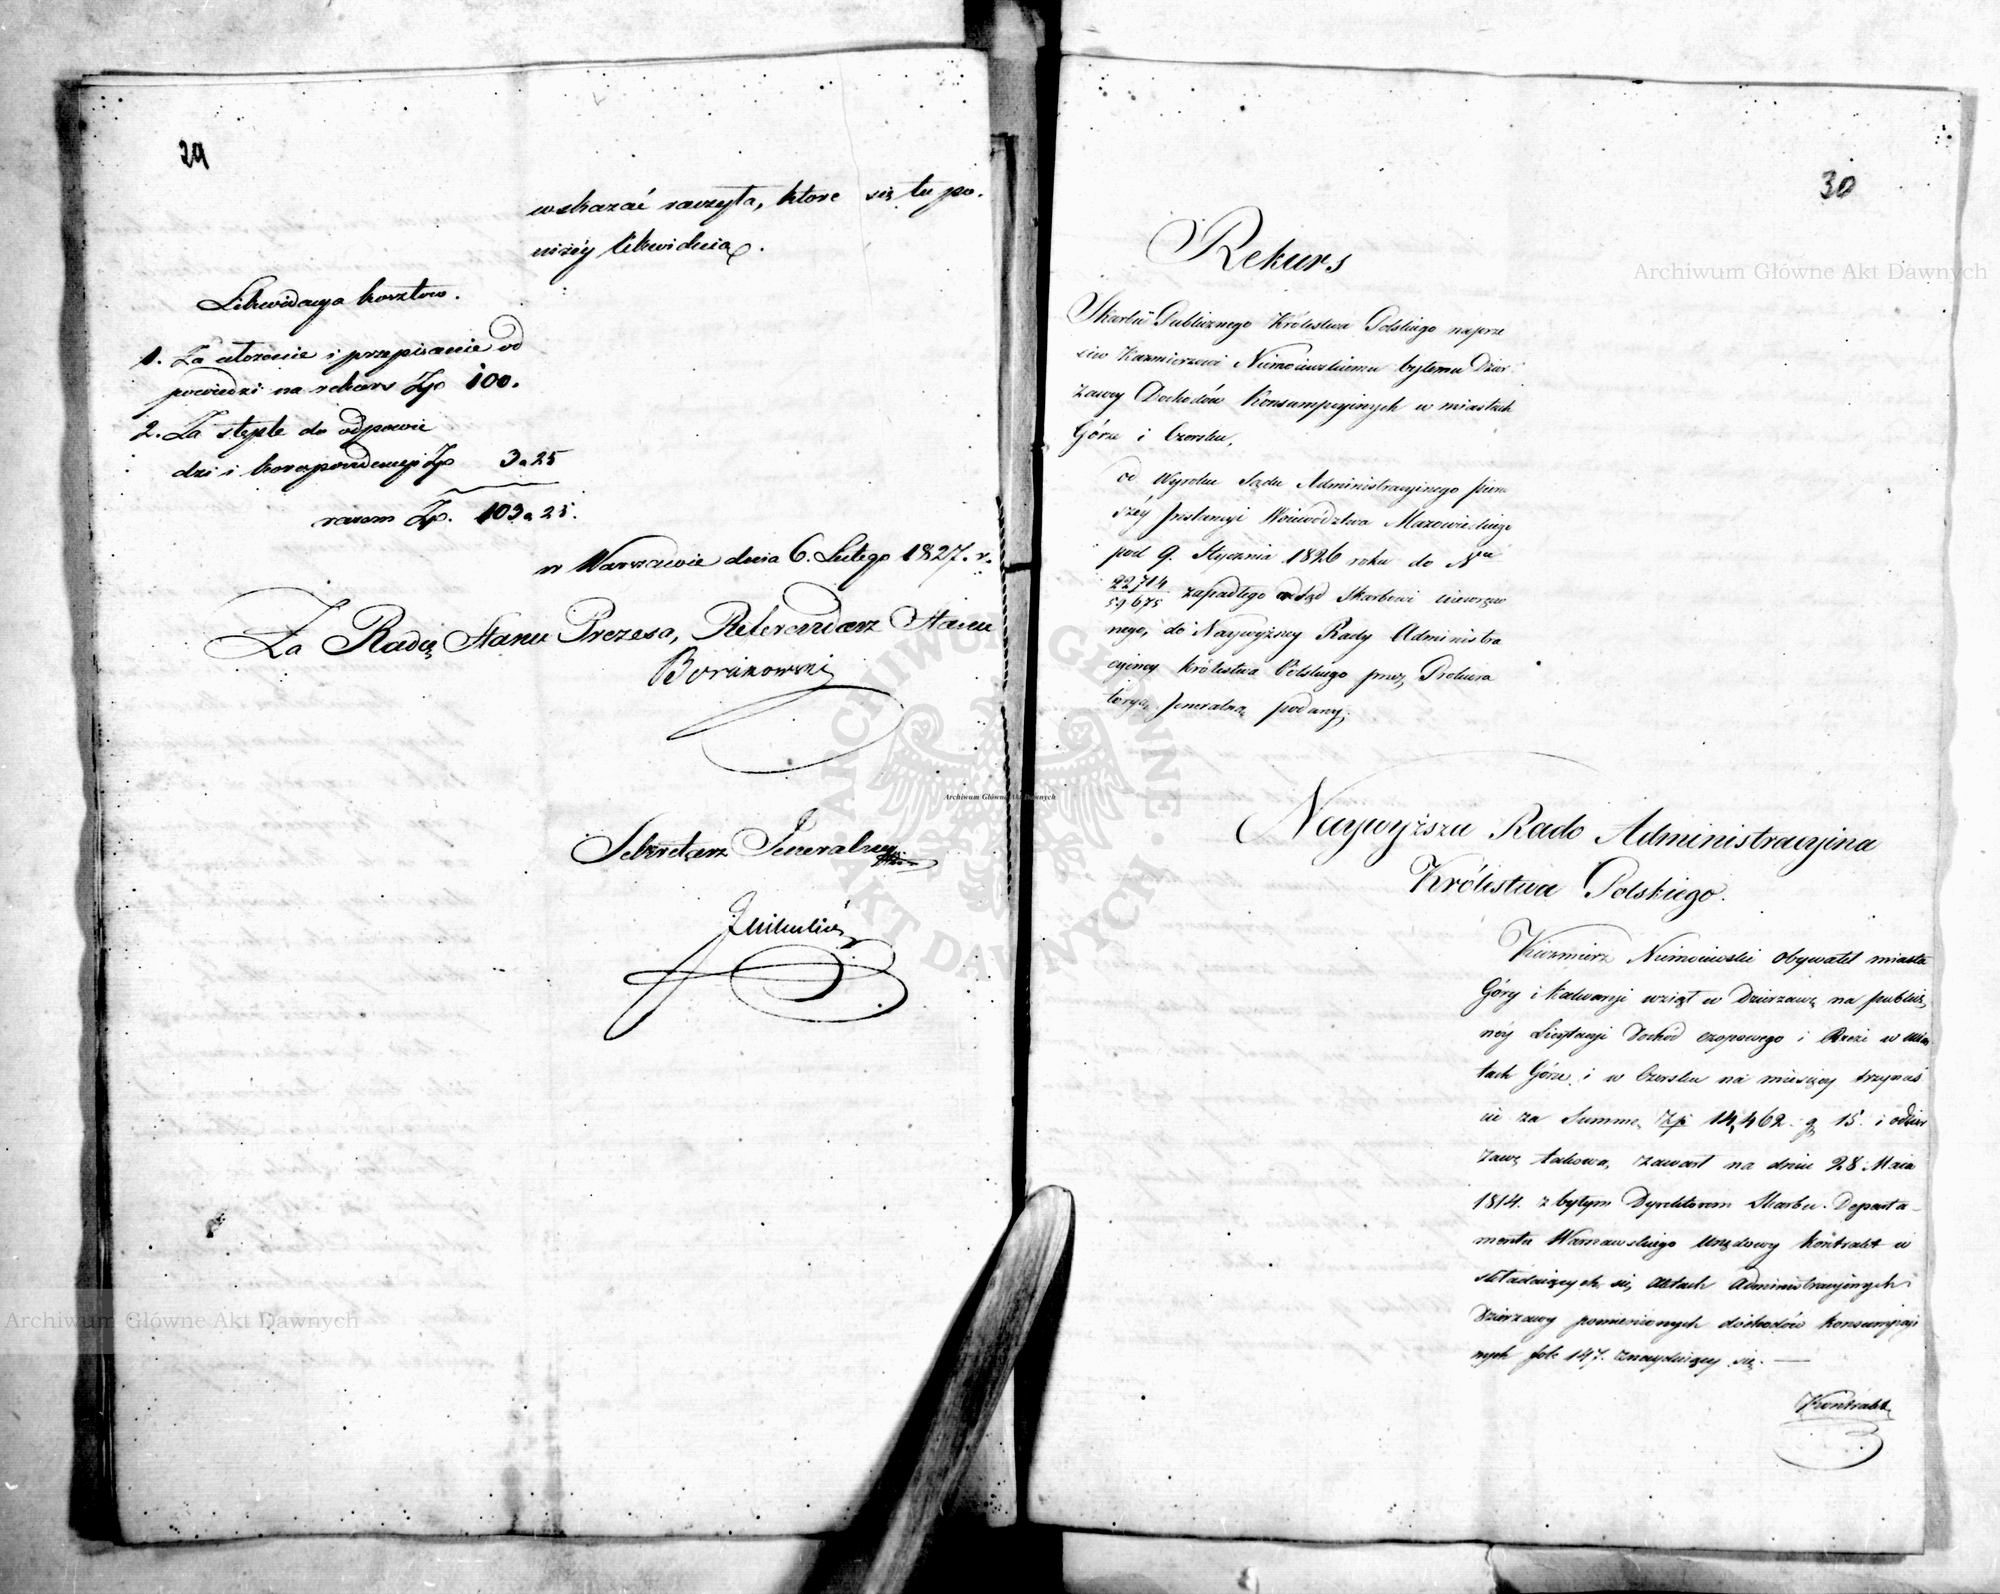 29
wskazać raczyła, które się tu po-
niżéy likwiduią.
Likwidacya kosztow.
1. Za ułożenie i przepisanie od
powiedzi na rekurs Zp 100.
2. Za stęple do odpowie
dzi i korrespondencyi Zp 3 „ 25
razem Zp. 103 „ 25.
w Warszawie dnia 6. Lutego 1827. r.
Za Radcę Stanu Prezesa, Referendarz Stanu
Sekretarz Jeneralny
30
Rekurs
Skarbu Publicznego Królestwa Polskiego naprze
ciw Kazmierzowi Niemoiewskiemu byłemu Dzier
zawcy Dochodów Konsumpcyinych w miastach
Górze i Czersku,
od Wyroku Sądu Administracyinego pierw
széy Instancyi Woiewództwa Mazowieckiego
pod 9. Stycznia 1826 roku do Nru
22714
59675 zapadłego
nego, do Naywyższey Rady Administra
cyiney Królestwa Polskiego przez Prokura
toryą Jeneralną podany.
Naywyższa Rado Administracyina
Królestwa Polskiego.
Kazmierz Niemoiewski obywatel miasta
Góry i Kalwaryi wziął w Dzierzawę na publicz
néy Licytacyi Dochód czopowego i Rzezi w mias
tach Górze i w Czersku na miesięcy trzynaś
cie za Summę Zp 14,462. gr 15. i o dzier
zawę takową, zawarł na dniu 28 Maia
1814. z byłym Dyrektorem Skarbu Departa-
mentu Warszawskiego Urzędowy Kontrakt w
składaiących się Aktach Administracyinych
Dzierzawy pomienionych dochodów konsumpcyi
nych fol: 147. znayduiący się. —
Kontrakt
Archiwum Główne Akt Dawnych
Archiwum Główne Akt Dawnych
Archiwum Główne Akt Dawnych
ARCHIWUM GŁÓWNE AKT DAWNYCH